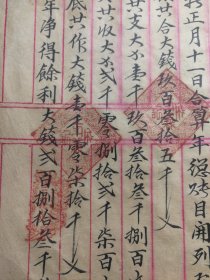 正月十一日合算年總賬目開列
共合大錢玖百叁拾五千文
共支大錢壹千玖百叁拾叁千捌百
共收大錢弍千零捌拾弍千柒百
底共作大錢壹千零柒拾千文
年净得餘利大錢弍百捌拾叁千